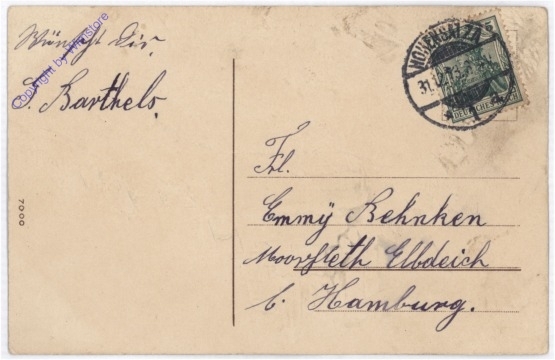 Wünscht Dir
G. Barthels.
Copyright by Whilstore
7000
HOHENSALZA
31.12.13
* 1
DEUTSCHES REICH
Frl.
Emmÿ Behnken
Moorfleth Elbdeich
b. Hamburg.